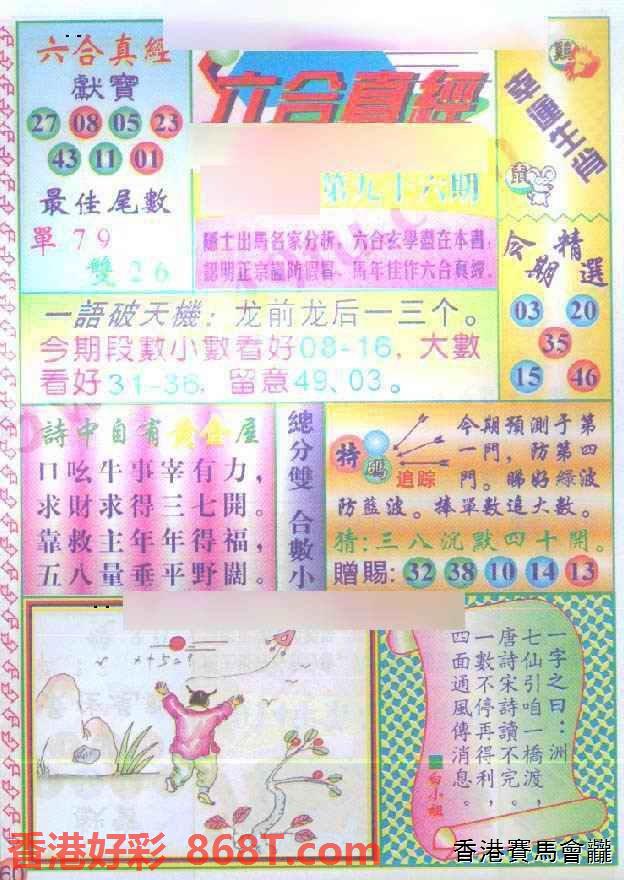 六合真經
獻寶
27 08 05 23
43 11 01
最佳尾數
單 7 9
雙 2 6
六合真經
第九十六期
隱士出馬名家分析，六合玄學盡在本書，
認明正宗謹防假冒、馬年佳作六合真經。
幸運生肖
鷄
鼠
今期精選
03 20
35
15 46
一語破天機：龙前龙后一三个。
今期段數小數看好08-16，大數
看好31-36，留意49、03。
詩中自有黃金屋
口吆牛事宰有力，
求財求得三七開。
靠救主年年得福，
五八量垂平野闊。
總分雙 合數小
特碼
追踪
今期預測于第
一門，防第四
門。睇好綠波
防藍波。捧單數追大數。
猜：三八沉默四十開。
贈賜：32 38 10 14 13
一字之曰：洲
七仙引咱一橋渡，
唐詩宋詩讀不完。
一數不停再得利，
四面通風傳消息。
白小姐
香港好彩 868T.com
香港賽馬會
60